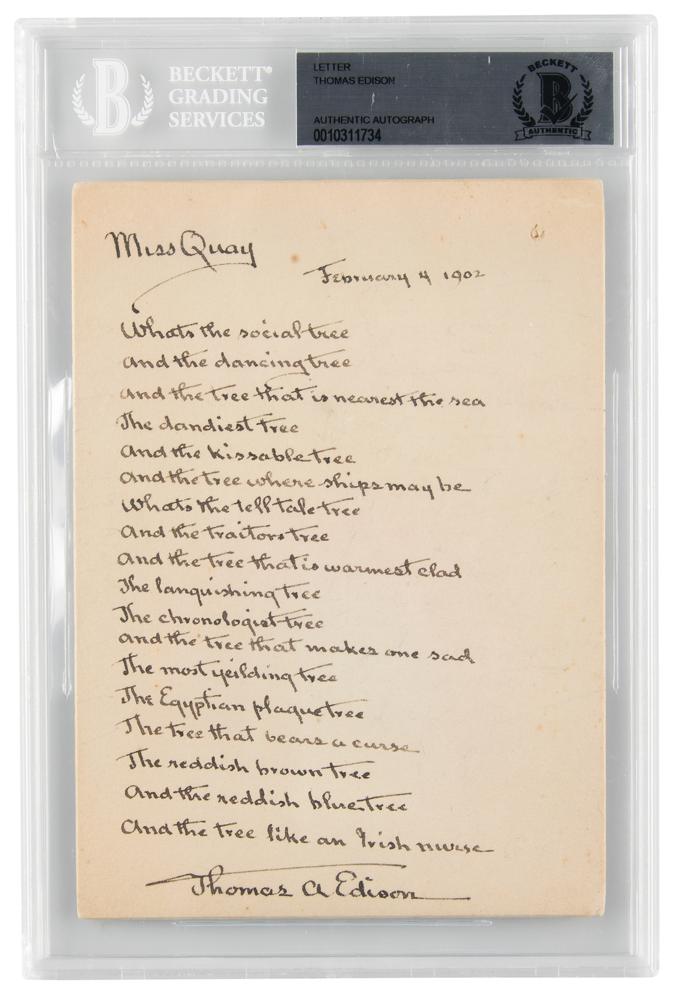 BECKETT®
GRADING
SERVICES
LETTER
THOMAS EDISON
AUTHENTIC AUTOGRAPH
0010311734
BECKETT
B
AUTHENTIC
Miss Quay
February 4 1902
Whats the social tree
And the dancing tree
And the tree that is nearest the sea
The dandiest tree
And the kissable tree
And the tree where ships may be
Whats the tell tale tree
And the traitors tree
And the tree that is warmest clad
The languishing tree
The chronologist tree
And the tree that makes one sad
The most yeilding tree
The Egyptian plague tree
The tree that bears a curse
The reddish brown tree
And the reddish blue tree
And the tree like an Irish nurse
Thomas A Edison